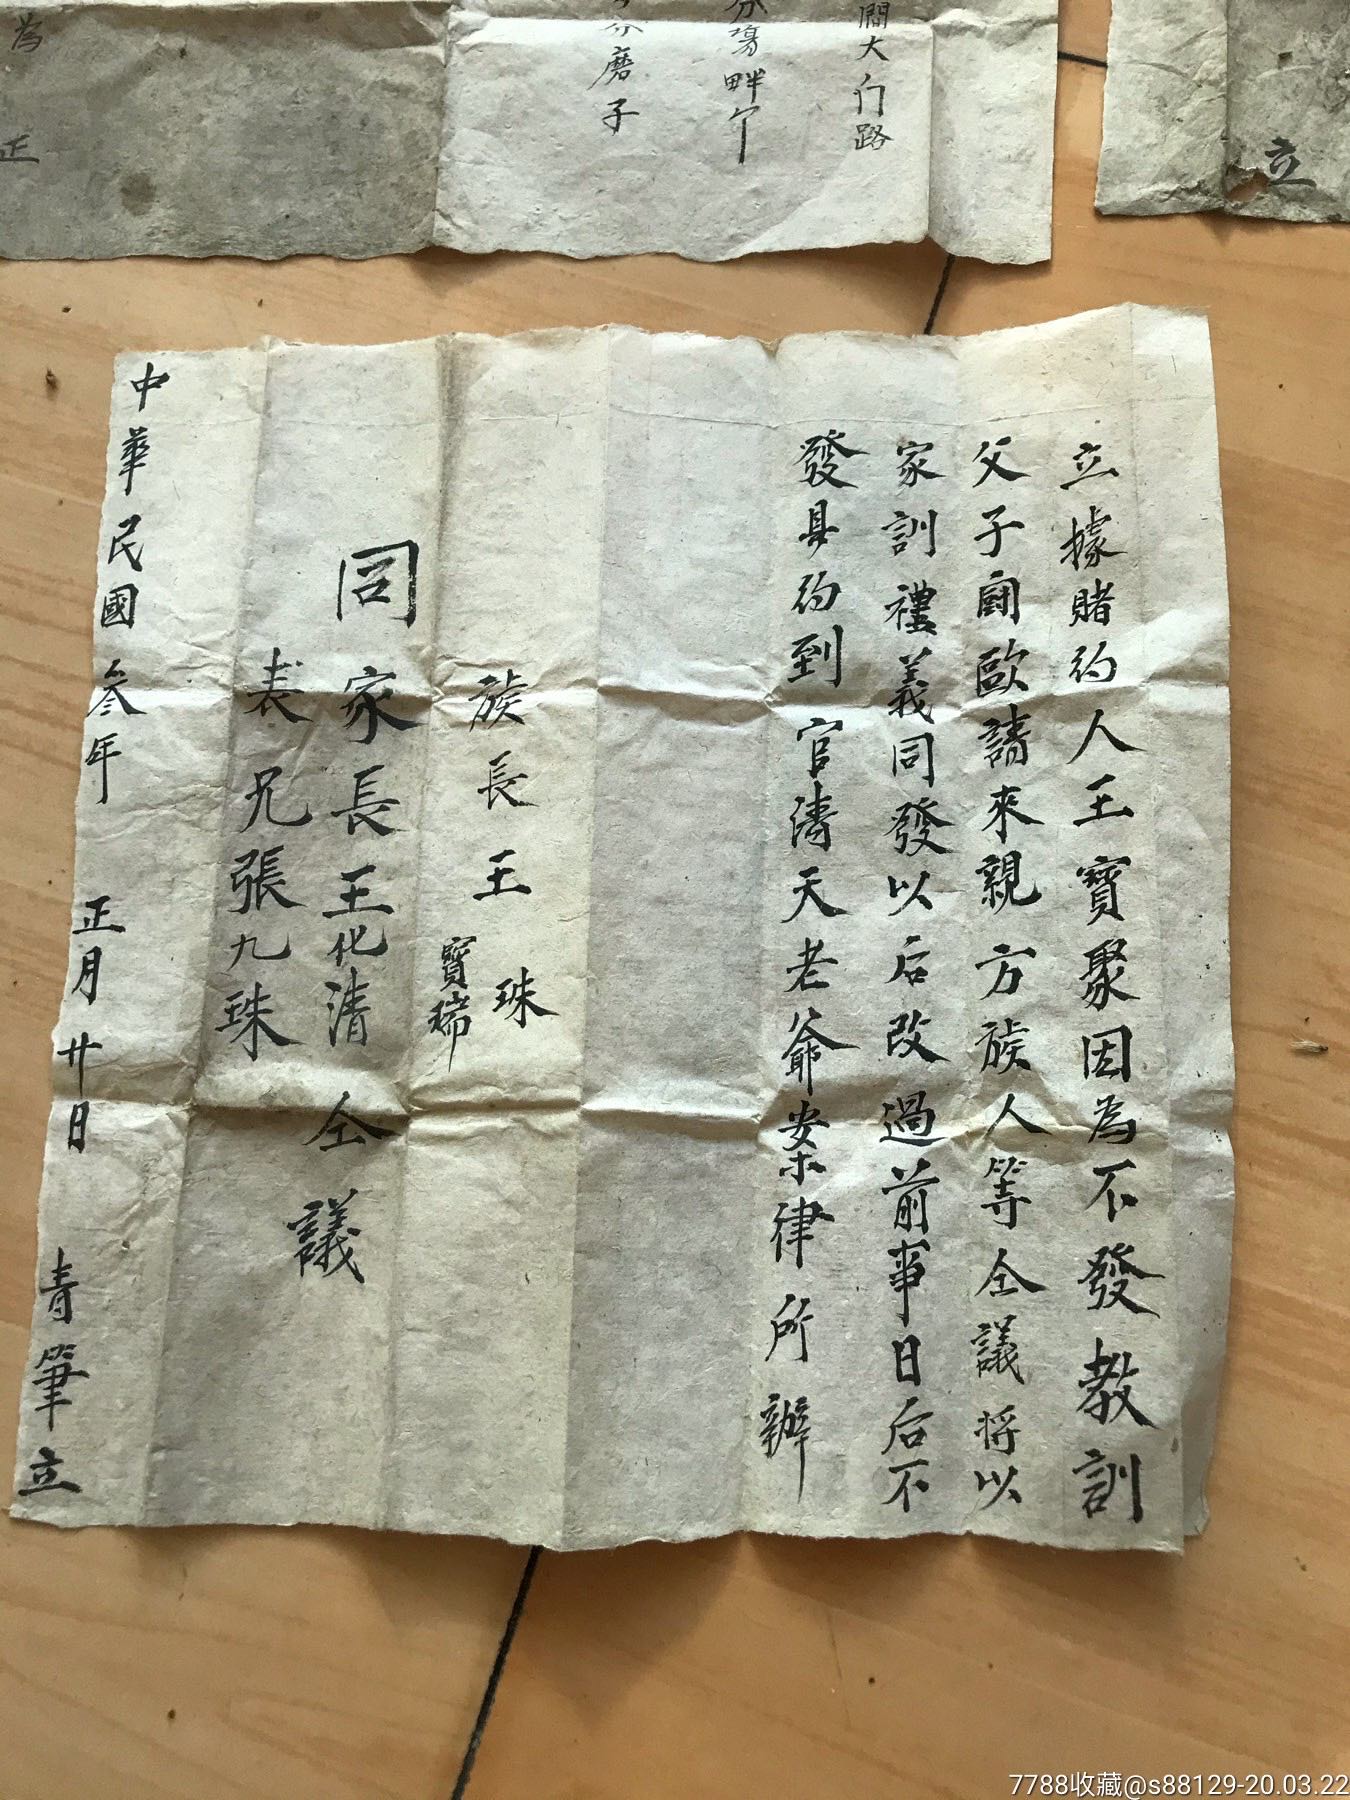 立據賭約人王寶聚因為不發教訓
父子鬪歐請來親方族人等仝議將以
家訓禮義同發以后改過前事日后不
發具約到官清天老爺案律所辦
族長王珠
寶瑞
同家長王化清仝議
表兄張九珠
中華民國叁年正月廿日青筆立
大门路
畔
磨子
為
正
立
7788收藏@s88129-20.03.22